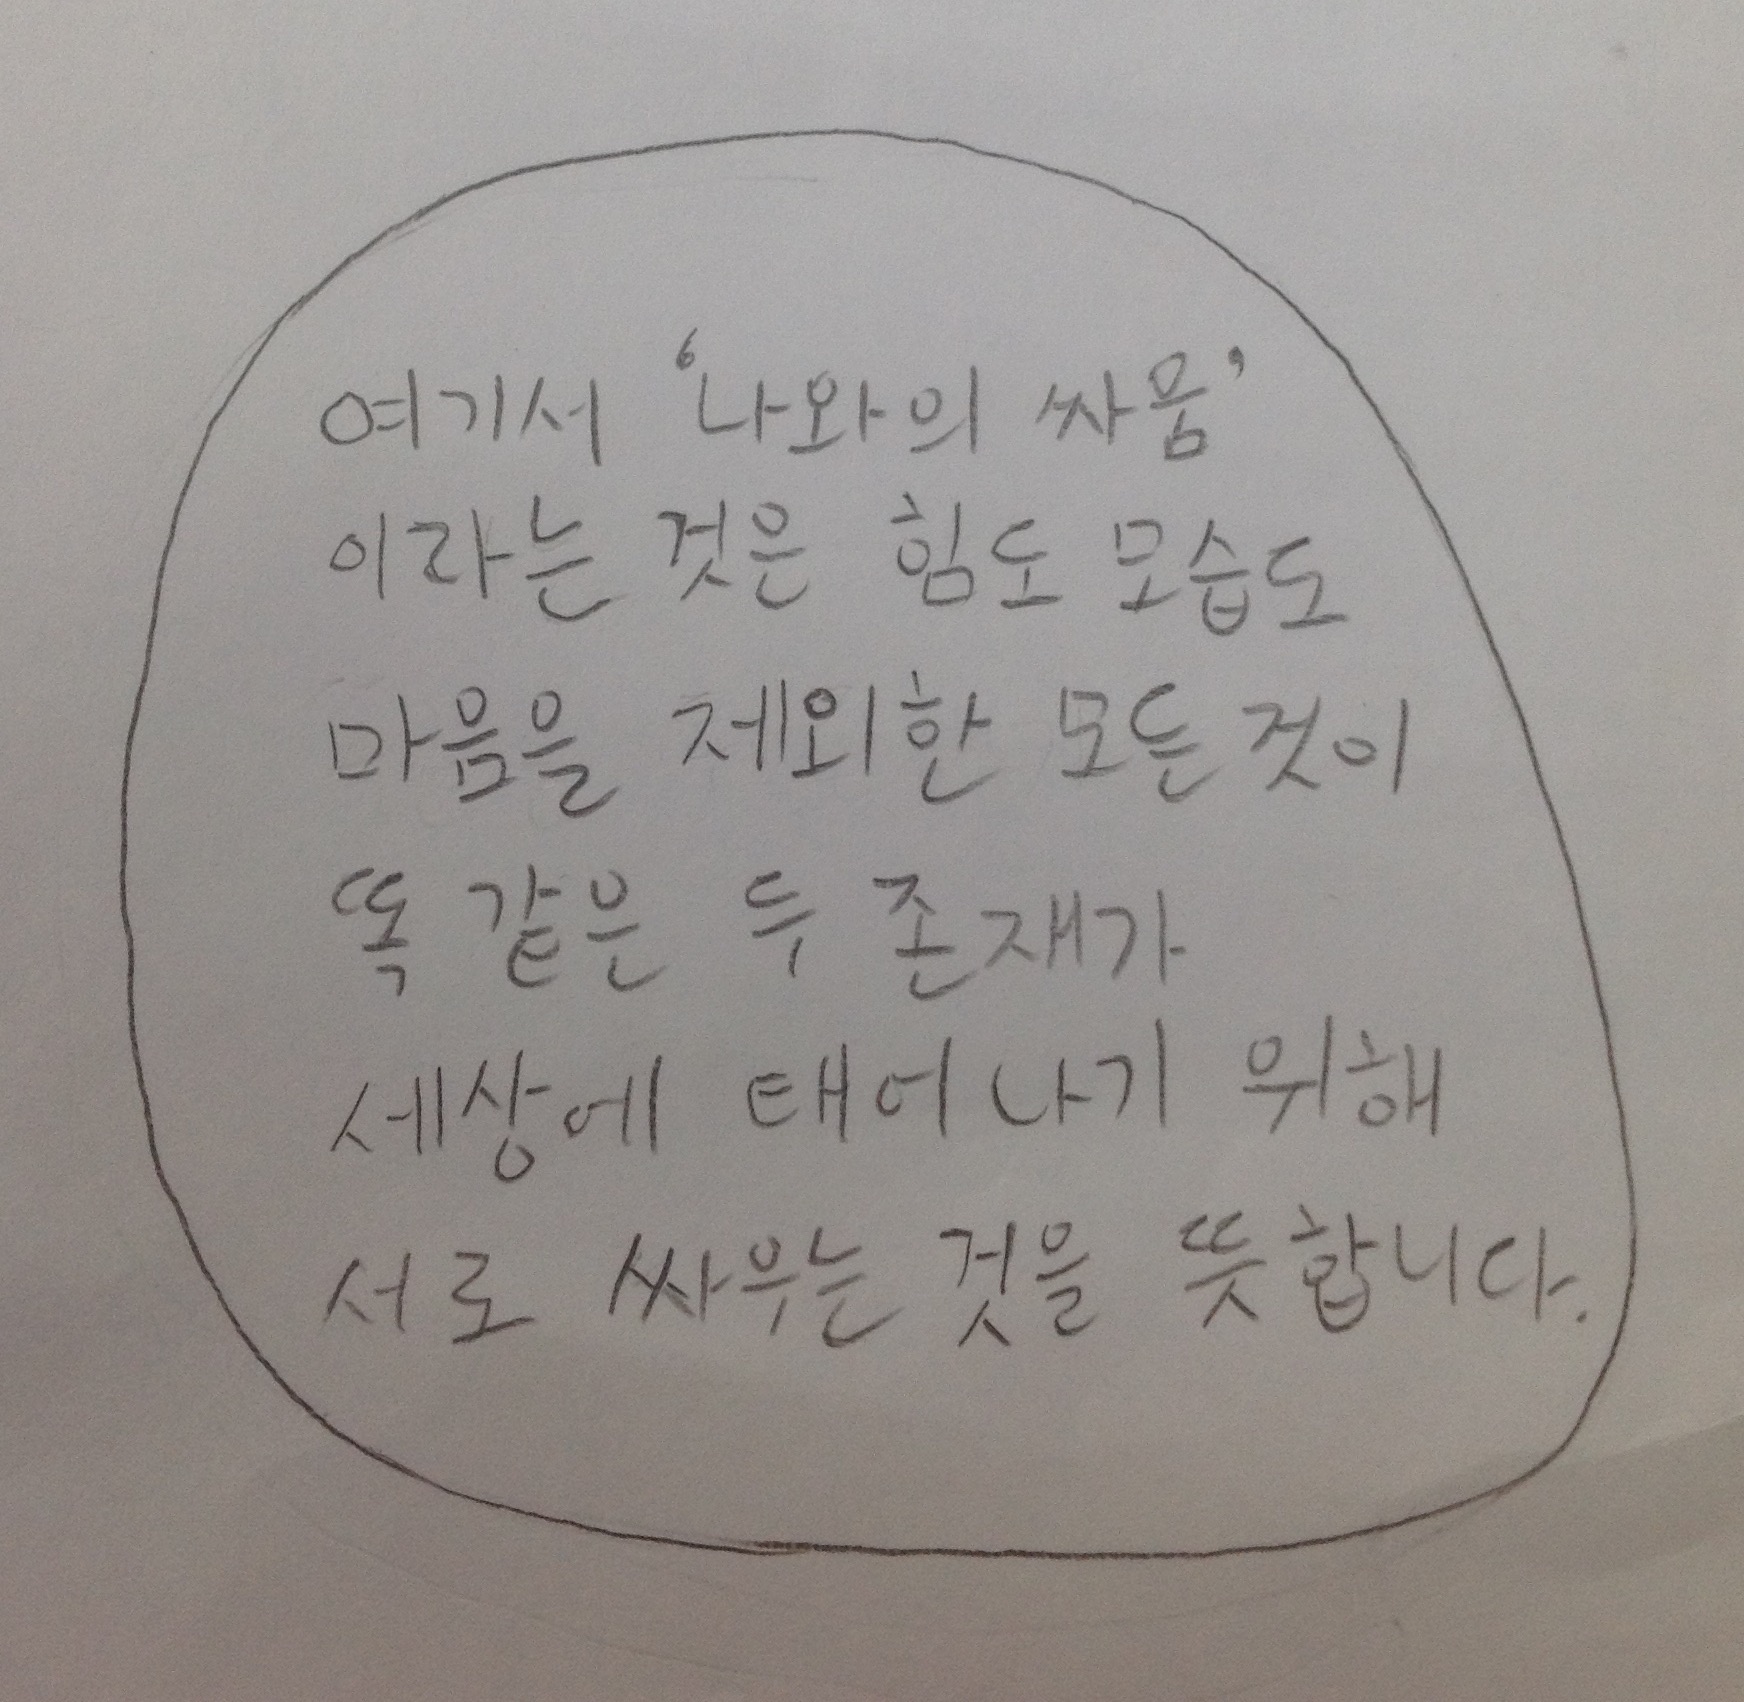 여기서 ‘나와의 싸움’
이라는 것은 힘도 모습도
마음을 제외한 모든 것이
똑 같은 두 존재가
세상에 태어나기 위해
서로 싸우는 것을 뜻합니다.